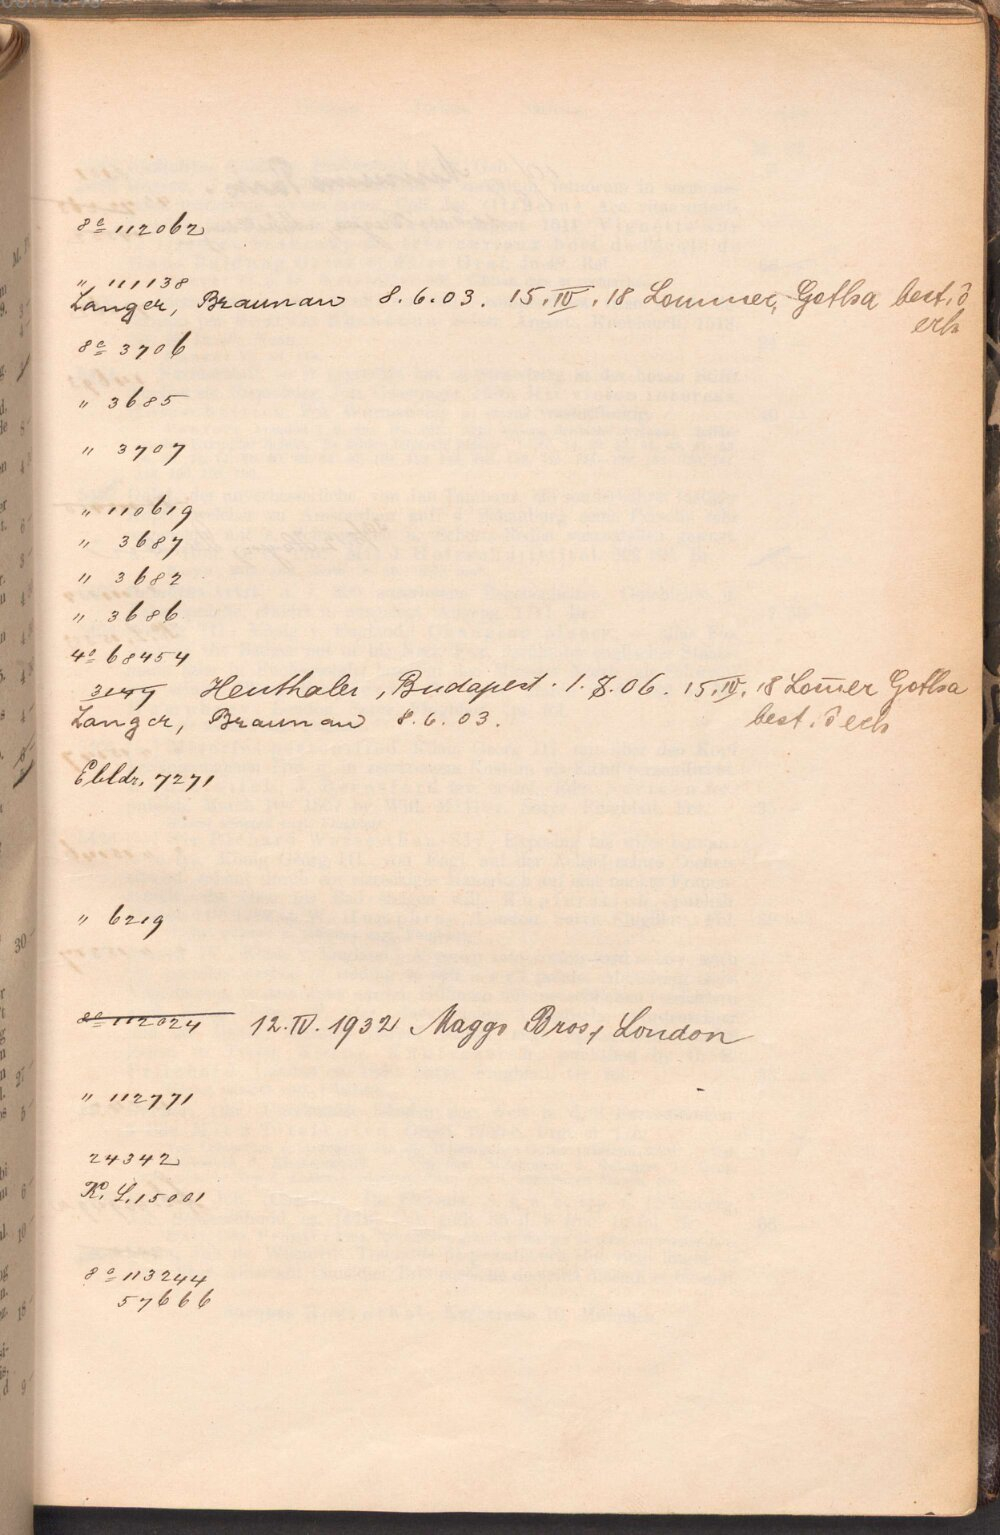 8º 112062
" 111138
Langer, Braunau 8.6.03. 15.IV.18 Lommer, Gotha best. ð
erh
8º 3706
" 3685
" 3707
" 110619
" 3687
" 3682
" 3686
4º 68454
3147 Heuthaler, Budapest. 1.8.06. 15.IV.18 Lom̄er Gotha
Langer, Braunau 8.6.03. best. ð erh
Ebldr. 7271
" 6219
8º 112024 12.IV.1932 Maggs Bros, London
" 112771
24342
K. L. 15001
8º 113244
57666